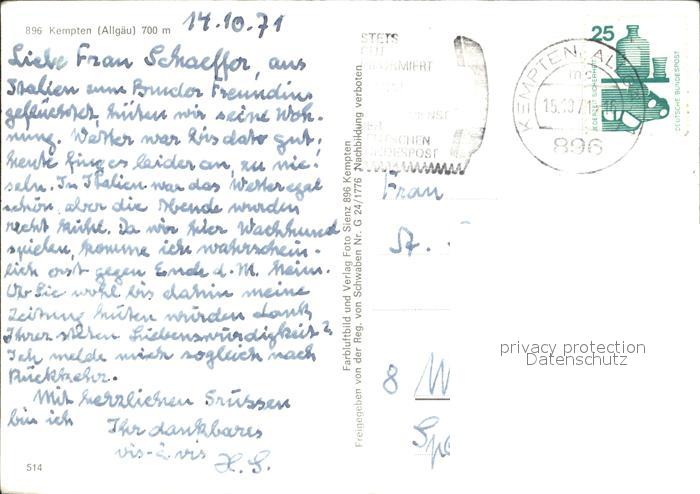 896 Kempten (Allgäu) 700 m
14.10.71
Liebe Frau Schaeffer, aus
Italien zum Bruder Freundins
geflüchtet, hüten wir seine Woh-
nung. Wetter war bis dato gut,
heute fing es leider an, zu nie-
seln. In Italien war das Wetter egal
schön, aber die Abende wurden
recht kühl. Da wir hier Wachhund
spielen, komme ich wahrschein-
lich erst gegen Ende d. M. heim.
Ob Sie wohl bis dahin meine
Zeitung hüten würden dank
Ihrer steten Liebenswürdigkeit?
Ich melde mich sogleich nach
Rückkehr.
Mit herzlichen Grüssen
bin ich Ihr dankbares
vis-à-vis H. G.
514
Farbluftbild und Verlag Foto Sienz 896 Kempten
Freigegeben von der Reg. von Schwaben Nr. G 24/1776 Nachbildung verboten
STETS
GUT
INFORMIERT
DIENSTE
DER
DEUTSCHEN
BUNDESPOST
KEMPTEN, AL
mc
15.10.71-16
896
25
JEDERZEIT SICHERHEIT
DEUTSCHE BUNDESPOST
Frau
St.
8 M
Spe
privacy protection
Datenschutz